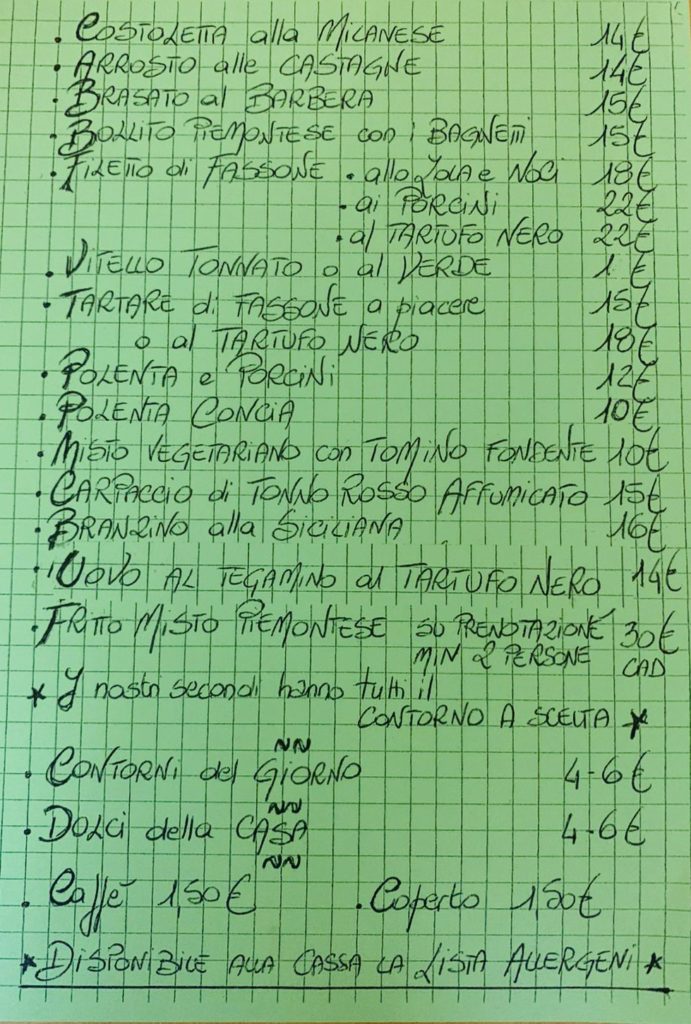 . COSTOLETTA alla MILANESE 14€
. ARROSTO alle CASTAGNE 14€
. BRASATO al BARBERA 15€
. BOLLITO PIEMONTESE con i BAGNETTI 15€
. FILETTO di FASSONE . allo ZOLA e NOCI 18€
. ai PORCINI 22€
. al TARTUFO NERO 22€
. VITELLO TONNATO o al VERDE 1 €
. TARTARE di FASSONE a piacere 15€
o al TARTUFO NERO 18€
. POLENTA e PORCINI 12€
. POLENTA CONCIA 10€
. MISTO VEGETARIANO con TOMINO FONDENTE 10€
. CARPACCIO di TONNO ROSSO AFFUMICATO 15€
. BRANZINO alla SICILIANA 16€
. UOVO AL TEGAMINO al TARTUFO NERO 14€
. FRITTO MISTO PIEMONTESE SU PRENOTAZIONE 30€
MIN 2 PERSONE CAD
* I nostri secondi hanno tutti il
CONTORNO A SCELTA *
. CONTORNI del GIORNO 4-6€
. DOLCI della CASA 4-6€
. Caffè 1,50€ . Coperto 1,50€
* DISPONIBILE ALLA CASSA LA LISTA ALLERGENI *